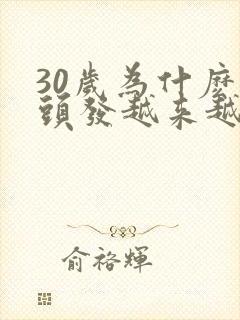 30歲為什麼
頭發越來越
俞裕輝